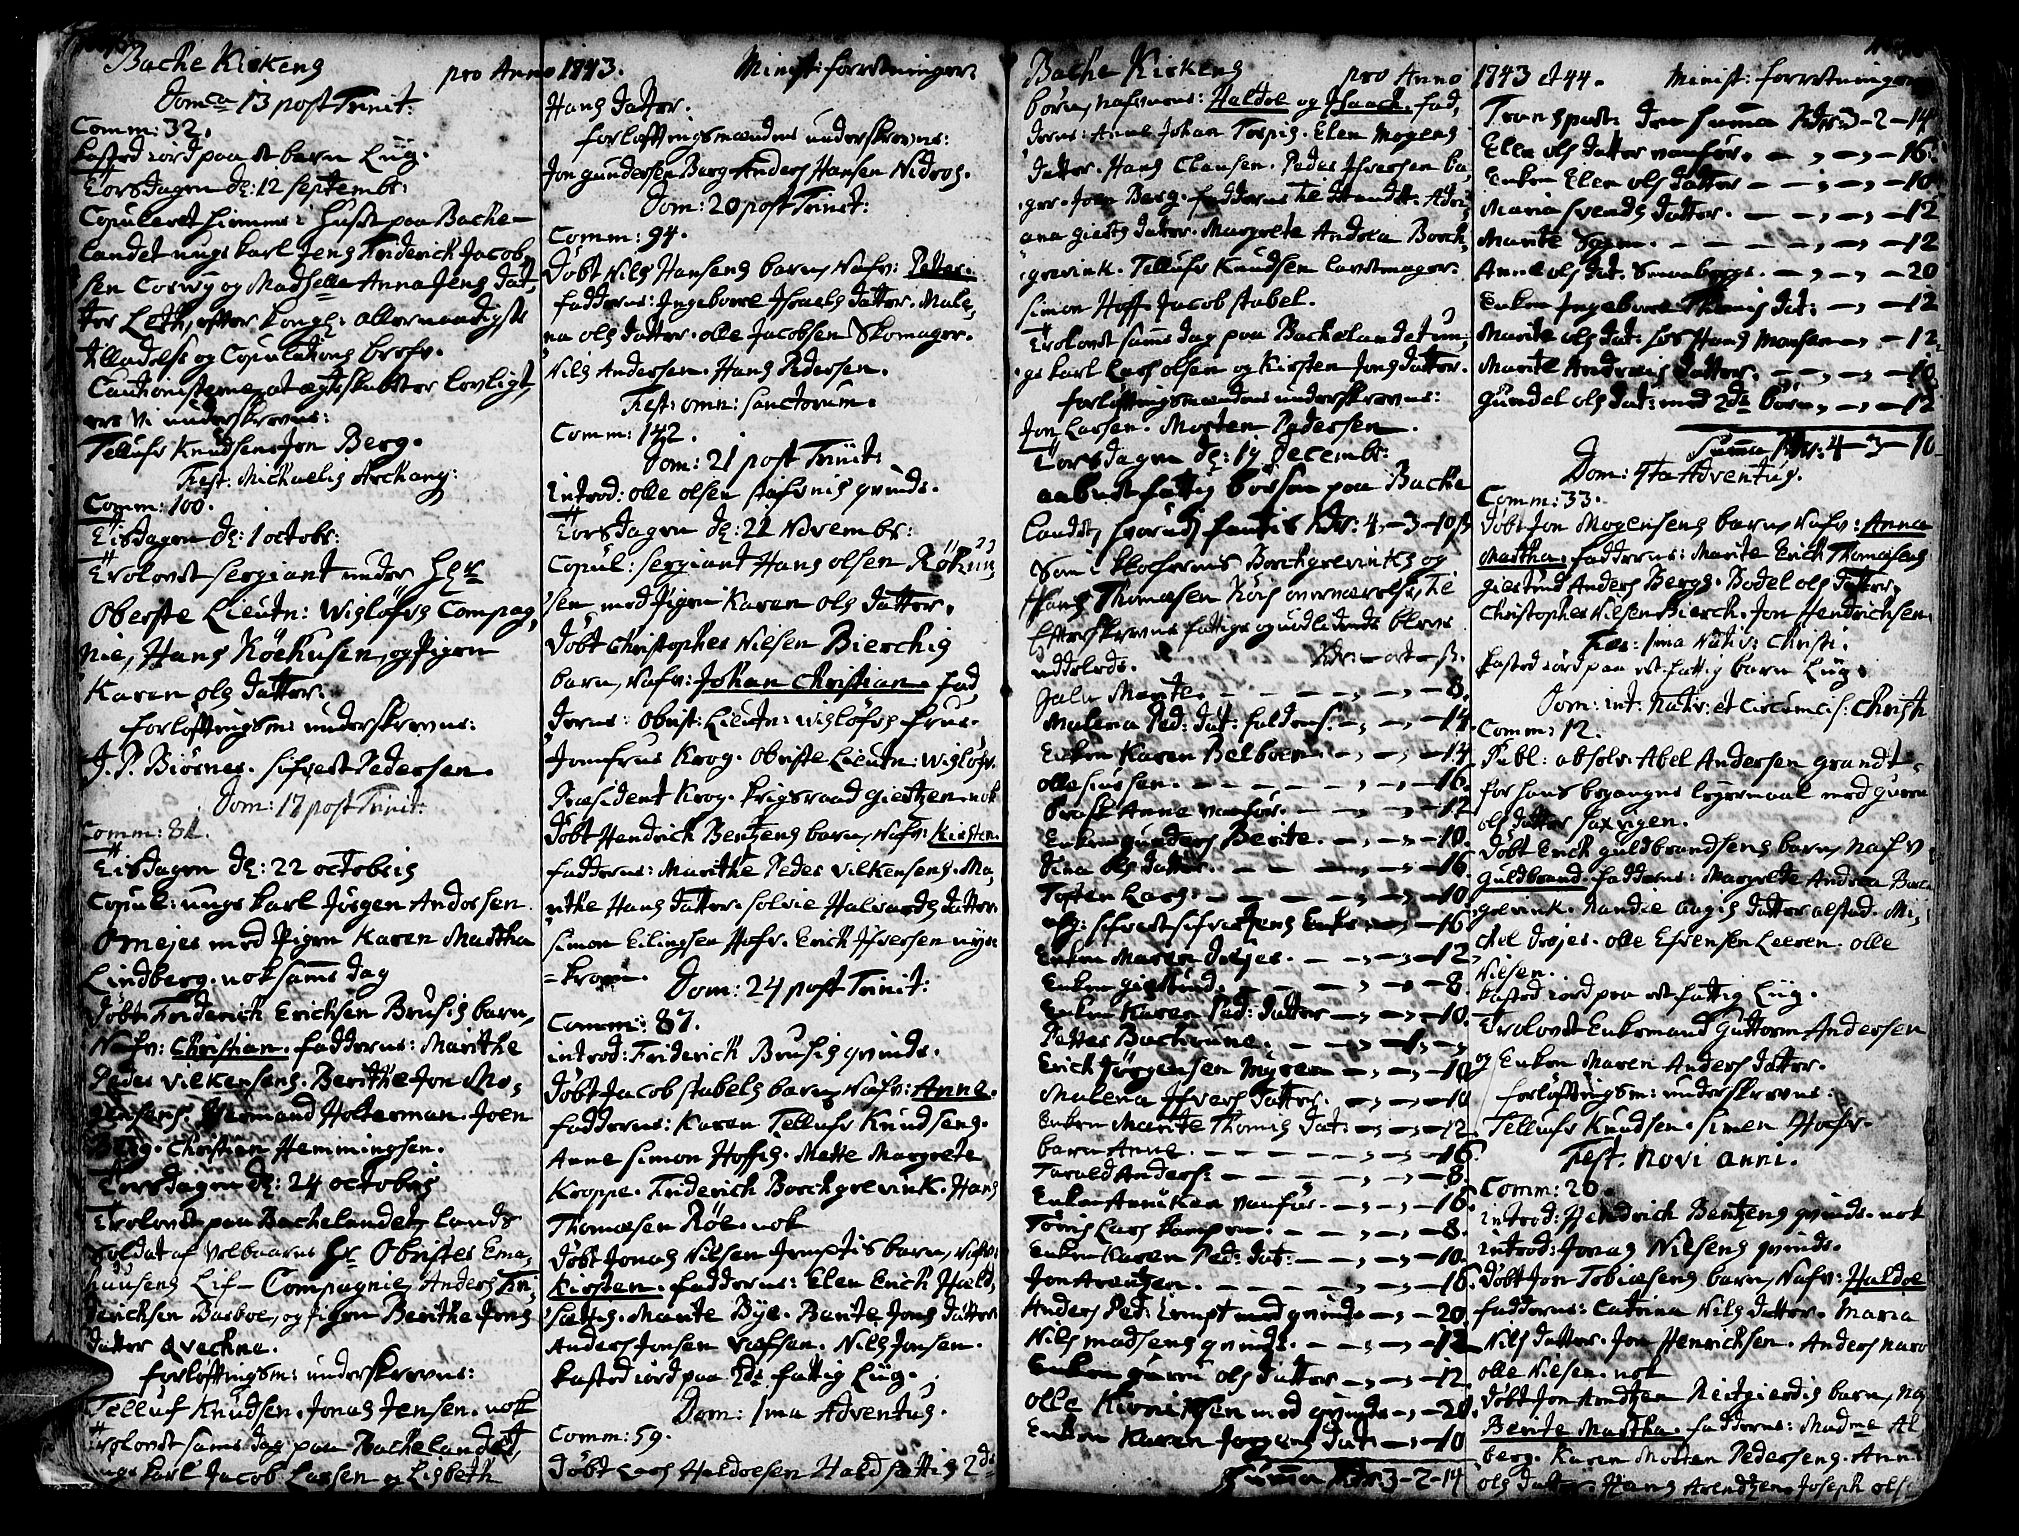 Bache Kirkens pro Anno 1743. Minist: forretninger
Dom^ca 13 post Trinit:
Comm: 32.
kasted iord paa et barn Liig.
Torsdagen d: 12 Septembr:
Copuleret hiemme i huset paa Bache-
landet ungkarl Jens Friderick Jacob,
sen Coswig og Madselle Anna Jens dat,
ter Leth, efter kongl: allernaadigste
tilladelse og Copulations bref.
Cautionisterne at ægteskabet er lovligt,
ere vi underskrevne:
Telluf Knudsen Jon Berg.
Fest: Michaelis Archang:
Comm: 100.
Tisdagen d: 1 octobr:
Trolovet sergiant under Herr
Oberste Lieutn: Wisløfs Compag,
nie, Hans Röehusen, og Pigen
Karen ols datter.
forloftningsm: underskrevne:
J. P. Biörner. Sifvert Pedersen.
Dom: 17 post Trinit:
Comm: 82.
Tisdagen d: 22 octobris
Copul: ungkarl Jörgen Andersen
Omejer med Pigen Karen Martha
Lindberg. nok samme dag
döbt Friderick Erichsen Brusis barn,
Nafn: Christian. fadderne: Marithe
Peder Vilkensens. Berithe Jon Mo,
gensens. Hermand Holterman. Joen
Berg. Christian Hemmingsen.
Torsdagen d: 24 octobris
Trolovet paa Bachelandet, Lands
Soldat af Velbaarne Hr Obrister Ema,
hausens Lif-Compagnie, Anders Fri,
derichsen Basboe, og Pigen Berithe Jons
datter Qvechne.
forloftningsm: underskrevne:
Telluf Knudsen. Jonas Jensen. nok
Trolovet samme dag paa Bachelandet,
ungkarl Jacob Larsen og Lisbeth
Hans datter.
forloftningsmændene underskrevne:
Jon Gundersen Berg Anders Hansen Nidros.
Dom: 20 post Trinit:
Comm: 94.
Döbt Nils Hansens barn, Nafn: Petter.
fadderne: Ingeborre Israels datter. Male,
na ols datter. olle Jacobsen Skomager.
Nils Andersen. Hans Pedersen.
Fest: omn: Sanctorum.
Comm: 142.
Dom: 21 post Trinit:
Introd: olle olsen Stafnis qvinde.
Torsdagen d: 21 Novembr:
Copul: Sergiant Hans olsen Röhuu,
sen med Pigen Karen ols datter.
Döbt Christopher Nilsen Bierchis
barn, Nafn: Johan Christian. fad
derne: Obrist: Lieutn: Wisløfs frue.
Jomfrue Krog. Obriste Lieutn: Wisløf.
Præsident Krog. Krigsraad Gientzen. nok
Döbt Hendrick Bentzens barn, Nafn: Kirsten.
fadderne: Marithe Peder Vilkensens. Ma,
rithe Hans datter. Solvie Halvards datter.
Simon Eilingsen Hofv. Erick Ifversen nyse
-kroen.
Dom: 24 post Trinit:
Comm: 87.
introd: Friderick Brusis qvinde.
Döbt Jacob Stabels barn, Nafn: Anne.
fadderne: Karen Telluf Knudsens.
Anne Simon Hoffis. Mette Margrete
Kroppe. Friderick Borchgrevink. Hans
Thomæsen Röe. nok
Döbt Jonas Nilsen Jemptis barn, Nafn:
Kirsten. fadderne: Elen Erick Hald,
sættis. Marite Bye. Berite Jons datter
Anders Jonsen Valsen. Nils Jonsen.
kasted iord paa 2de fattig Liig.
Dom: 1ma Adventus.
Comm: 59.
Döbt Lars Haldoesen Haldsættis 2de
Bache Kirkens pro Anno 1743 et 44. Minist: forretninger
börn, nafnene: Haldoe og Isaach. fad,
derne: Anne Johan Torpis. Elen Mogens
datter. Hans Clausen. Peder Ifversen ba,
ger. Joen Berg. fadderne til det andet: Adri,
ana Giertz datter. Margrete Andrea Borch,
grevink. Telluf Knudsen lavetmager.
Simon Hoff. Jacob Stabel.
Trolovet samme dag paa Bachelandet un,
gekarl Lars olsen og Kirsten Jons datter.
forloftningsmændene underskrevne:
Jon Larsen. Morten Pedersen.
Torsdagen d: 19 Decembr:
aabnet fattig bössen paa Bache
landet, hvorudj fantis Rdr: 4-3-10ß
Som i Klocherens Borchgrevinks og
Hans Thomæsen Röes overværelse, til
Efterskrevne fattige og nødlidende bleve
uddeelede. Rdr:- ort - ß.
Jalu Marite. - 8.
Malena Ped: dat: - 14
Enken Karen Belboen. - 14
olle Siursen. - 16.
Prost Anne vanför. - 12
Enken Gunders Berite. - 10.
Dina ols datter. - 16
Tosten Lars: - 10
afg: Sifvert Sifvertsens Enke - 16
Enken Maren Drejer. - 12
Enken Giertrud. - 8.
Enken Karen Ped: datter - 10.
Petter Bachtrune.
Erick Jörgensen Myren - 10
Malena Ifvers datter. - 10
Enken Marite Thomis dat: - 12
barn Anne. - 16
Taruld Anders: - 8
Enken Anniken vanför. - 16
Tönis Lars - 8.
Enken Karen Ped: dat: - 10.
Jon Arentzen. - 16
Anders Ped: Lempt med qvinde - 20.
Nils Madsens qvinde. - 12
Enken Guren ols datter - 12
olle med qvinde - 20
Enken Karen Jörgens dat: - 10
Summa Rdr. 3-2-14
Transport: den Summa Rdr: 3-2-14
Ellen ols datter vanför. - 16.
Enken Elen ols datter - 10
Maria Svends datter. - 12
Marite - 12
Anne ols dat: - 20
Enken Ingeborre Thomis dat: - 12
Marite ols dat: hos Hans Monsen - 12
Marite Anderis datter. - 10
Gundel ols dat: med 2de börn - 12
Summa Rdr: 4-3-10
D: 4ta Adventus.
Comm: 33.
Döbt Jon Mogensens barn, Nafn: Anna
Martha. fadderne: Marite Erick Thomæsens
Giertrud Anders Bergs. Bodel ols datter.
Christopher Nilsen Bierck. Jon Hendrichsen.
Fer: 1ma Nativ: Christi.
kasted iord paa et fattig barn Liig.
Dom: int: Nativ: et Circumcis: Christi
Comm: 12.
Publ: absolv: Abel Andersen Grandt
for hans begangne legermaal med Guren
ols datter Saxvigen.
Döbt Erick Guldbrandsens barn, Nafn
Guldbrand. fadderne: Margrete Andrea Borch
grevink. Randie Aagis datter alstad. Mi,
chel Drejer. olle Efvensen Leeren. olle
Nilsen.
kasted iord paa et fattig Liig.
Trolovet Enkemand Guttorm Andersen
og Enken Maren Anders datter.
forloftningsm: underskrevne:
Telluf Knudsen. Simen Hofv.
Fest. Novi Anni.
Comm: 20
introd: Hendrich Bentzens qvinde. nok
introd: Jonas Nilsens qvinde.
Döbt Jon Tobiæsens barn, Nafn: Haldoe
fadderne: Catrina Nils datter. Maria
Nils datter. Jon Henricksen. Anders
olle Nilsen. nok
Döbt Jon Andtzen Reitgierdis barn, Na
Berite Martha. fadderne: Madme Al
berg. Karen Morten Pedersens. Anne
ols datter. Hans Arendtzen. Joseph ols